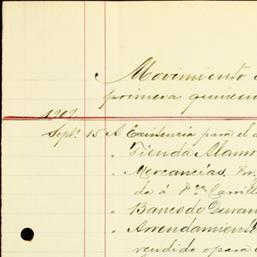 Movimiento
primera quincen
1909.
Sept. 15 A Existencia para el
" Tienda Alamo
" Mercancías, Por
da á Fco Carrill
" Banco de Duran
" Arrendamient
rendido para